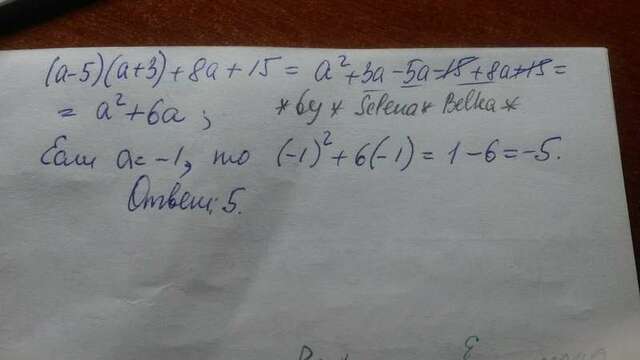 (a-5)(a+3)+8a+15 = a²+3a-5a-15+8a+15=
= a²+6a; *by* Selena* Belka*
Если a=-1, то (-1)²+6(-1)=1-6=-5.
Ответ: 5.